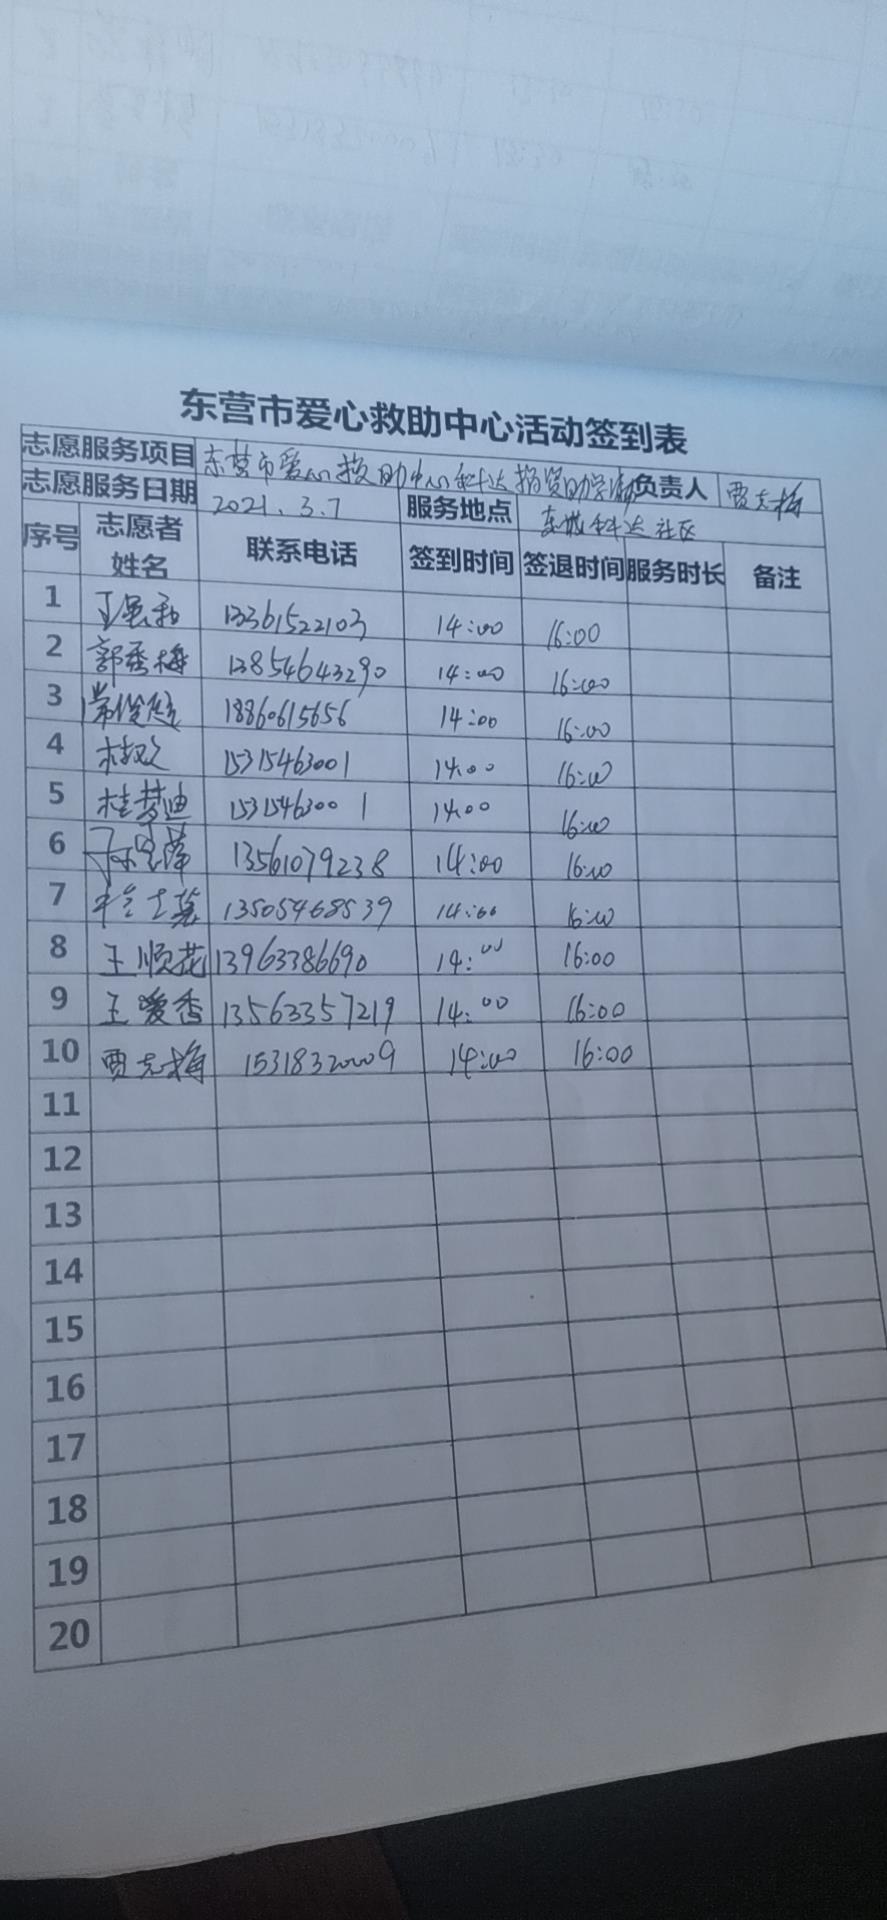 东营市爱心救助中心活动签到表
志愿服务项目 东营市爱心救助中心科达捐资助学活动 负责人 贾克梅
志愿服务日期 2021.3.7 服务地点 东城科达社区
序号 志愿者姓名 联系电话 签到时间 签退时间 服务时长 备注
1 13361522103 14:00 16:00
2 郭秀梅 13854643290 14:00 16:00
3 常俊超 18860615656 14:00 16:00
4 15315463001 14:00 16:00
5 桂梦迪 15315463001 14:00 16:00
6 13561079238 14:00 16:00
7 13505468539 14:00 16:00
8 王顺花 13963386690 14:00 16:00
9 王爱香 13563357219 14:00 16:00
10 贾克梅 15318320009 14:00 16:00
11
12
13
14
15
16
17
18
19
20